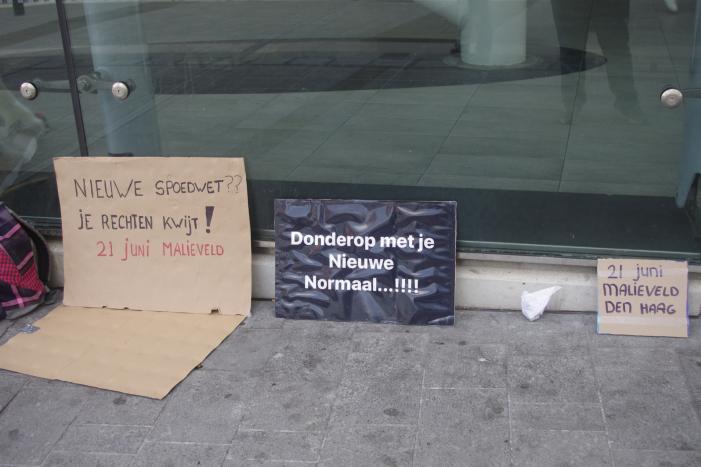 NIEUWE SPOEDWET??
je RECHTEN KWIJT!
21 juni MALIEVELD
Donderop met je
Nieuwe
Normaal...!!!!
21 juni
MALIEVELD
DEN HAAG